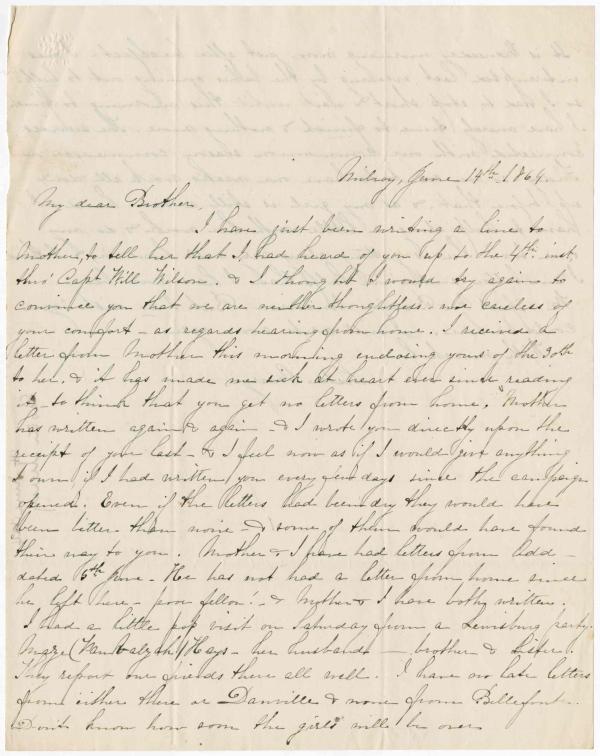 Milroy, June 14th 1864.
My dear Brother,
I have just been writing a line to
Mother, to tell her that I had heard of you up to the 4th inst
thro' Capt Will Wilson. & I thought I would try again to
convince you that we are neither thoughtless nor careless of
your comfort - as regards hearing from home. I received a
letter from Mother this morning enclosing yours of the 30th
to her. & it has made me sick at heart ever since reading
it - to think that you get no letters from home. Mother
has written again & again - & I wrote you directly upon the
receipt of your last - & I feel now as if I would give anything
I own if I had written you every few days since the campaign
opened. Even if the letters had been dry they would have
been better than none - & some of them would have found
their way to you. Mother & I have had letters from
dated 6th June - He has not had a letter from home since
he left here - poor fellow! - & Mother & I have both written.
I had a little pop visit on Saturday from a Lewisburg party.
Mary (Van Valzah) Hays - her husband - brother & sister.
They report our friends there all well. I have no late letters
from either there or Danville & none from Bellefonte.
Don't know how soon the girls will be over